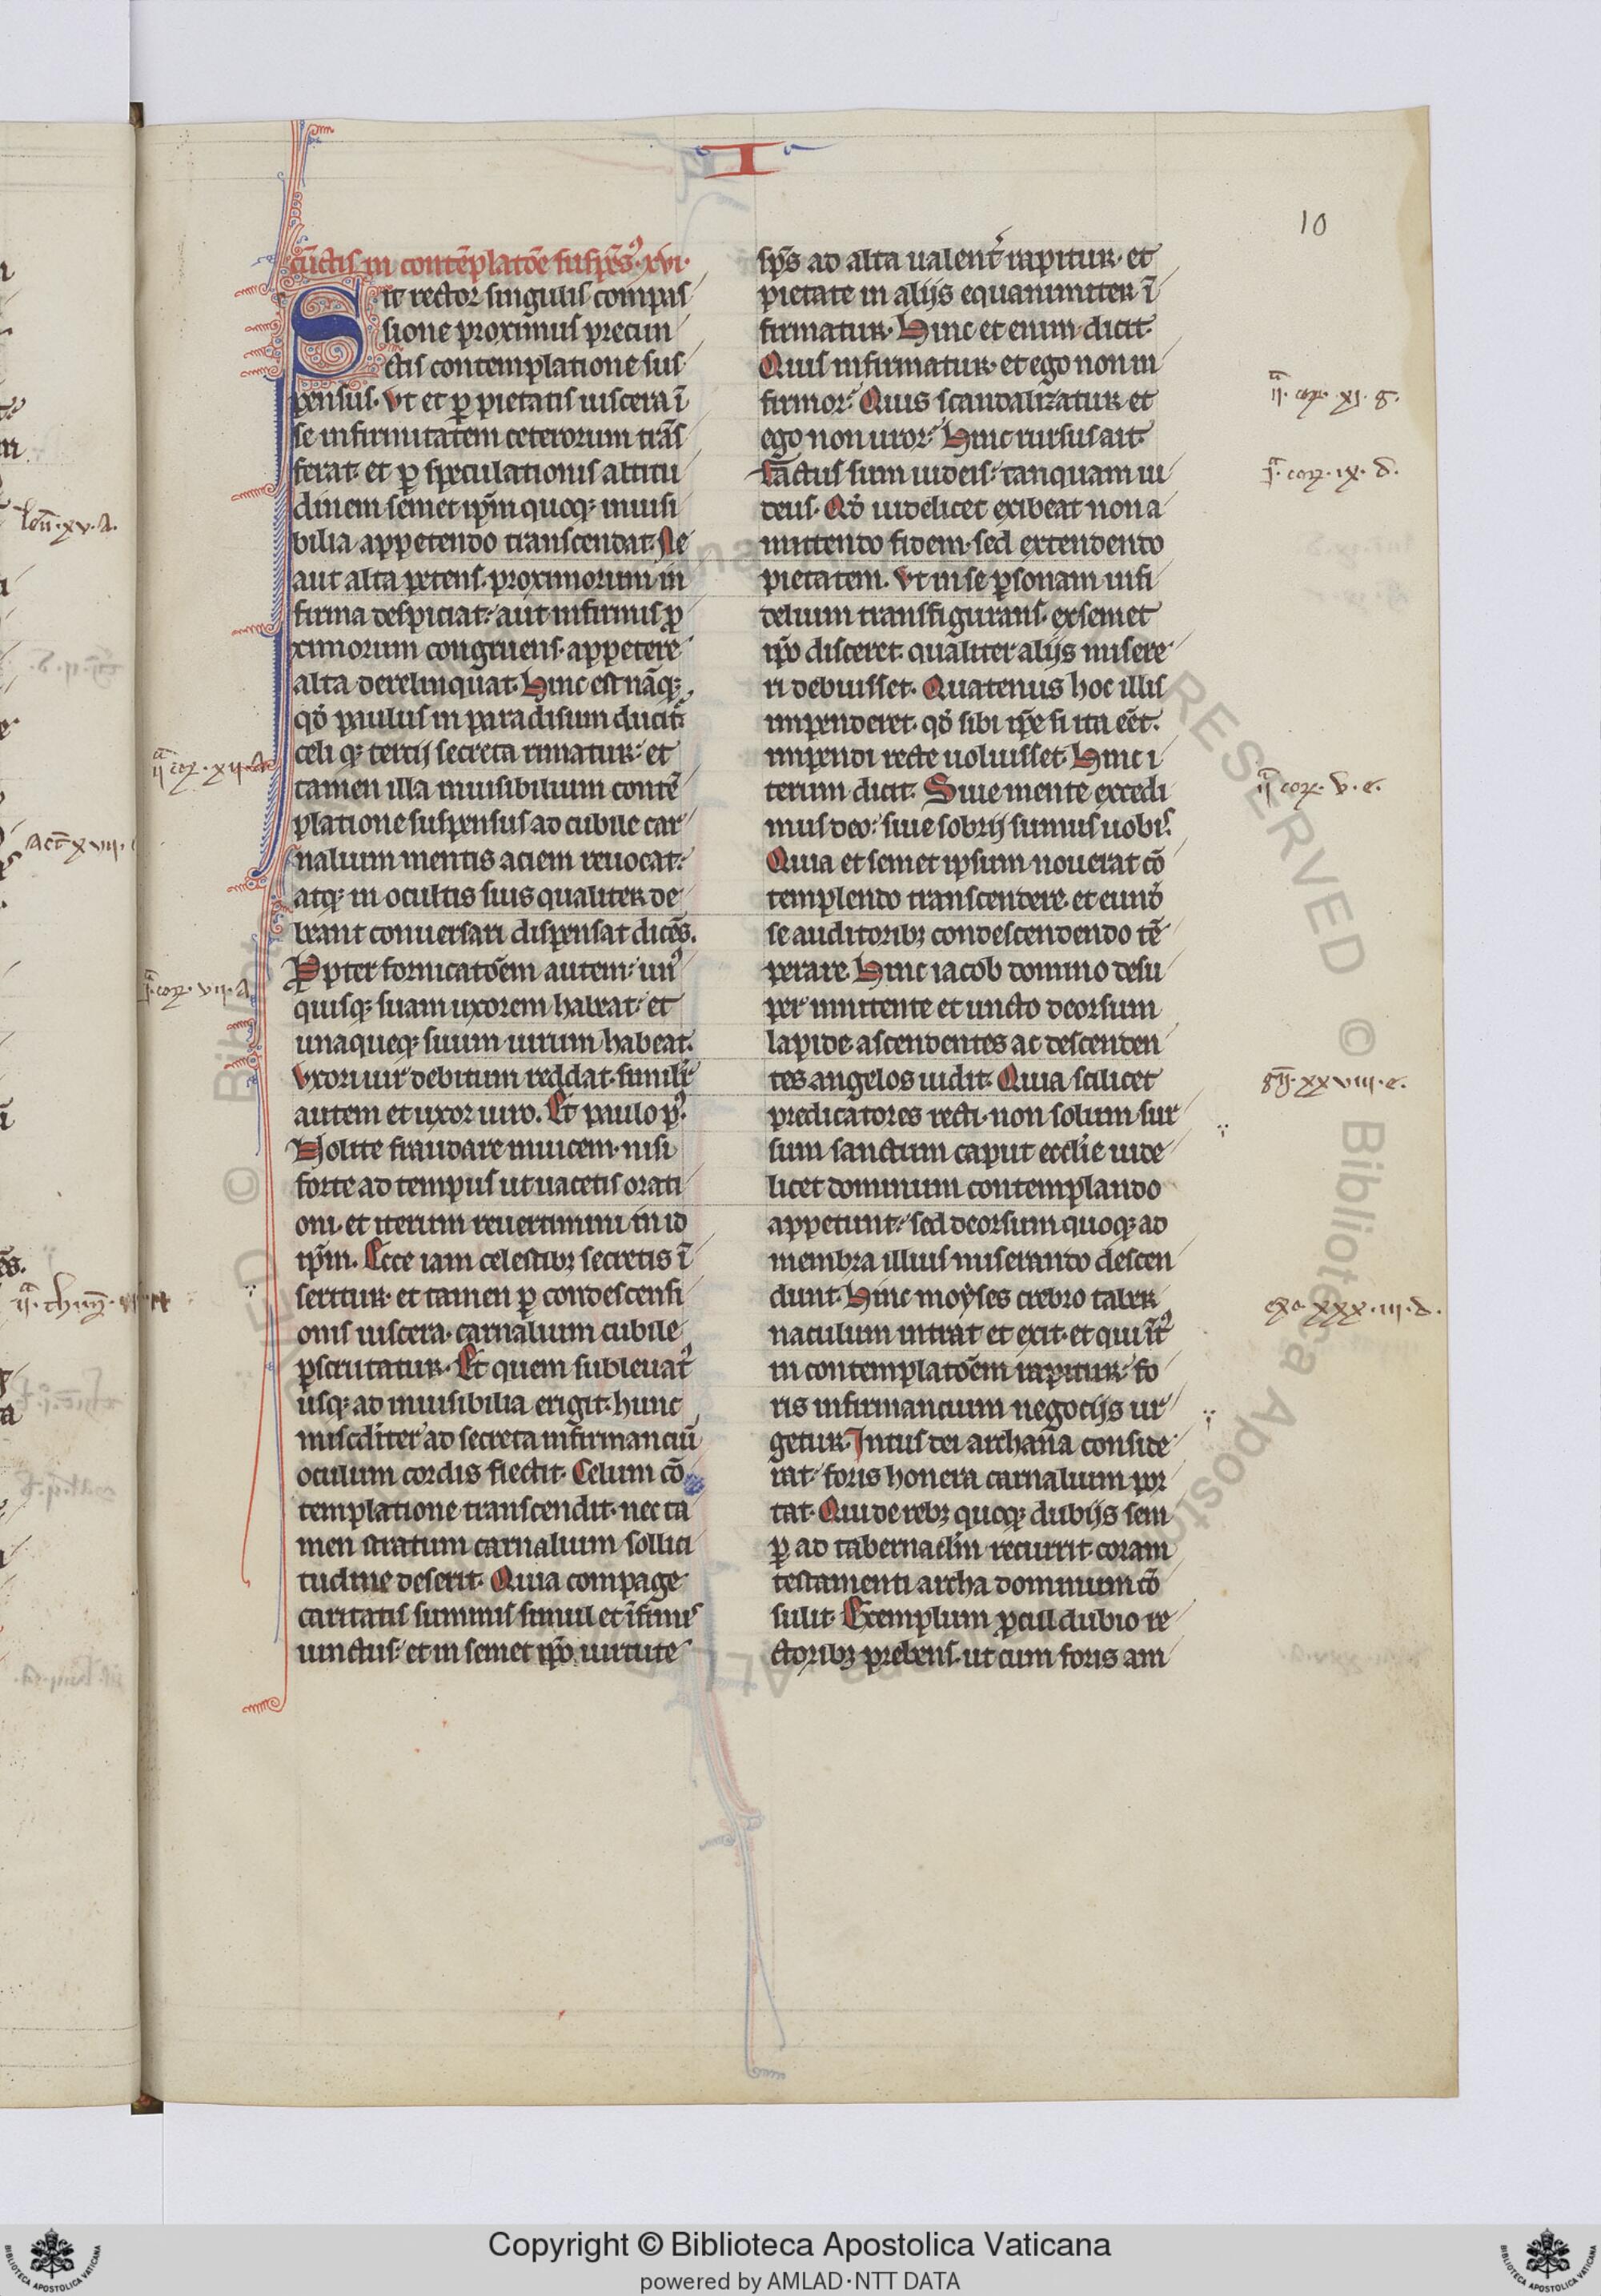 I
10
cūctis in contēplatōe suspēs᷒·xvi·
Sit rector singulis compas
sione proximus precun
ctis contemplatione sus
pensus. Vt et ꝑ pietatis uiscera ī
se infirmitatem ceterorum trās
ferat. et ꝑ speculationis altitu
dinem semet ip̄m quoqꝫ inuisi
bilia appetendo transcendat. Ne
aut alta petens. proximorum in
firma despiciat. aut infirmis ꝓ
ximorum congruens. appetere
alta derelinquat. Hinc est nāqꝫ
qđ paulus in paradisum ducit᷑
celi qꝫ tercij secreta rimatur. et
tamen illa inuisibilium contē
platione suspensus ad cubile car
nalium mentis aciem reuocat.
atqꝫ in ocultis suis qualiter de
beant conuersari dispensat dicēs.
Ꝓpter fornicatōem autem. un᷒
quisqꝫ suam uxorem habeat. et
unaqueqꝫ suum uirum habeat.
Vxori uir debitum reddat. similr̄
autem et uxor uiro. Et paulo p᷒.
Nolite fraudare inuicem. nisi
forte ad tempus ut uacetis orati
oni. et iterum reuertimini in id
ip̄m. Ecce iam celestibꝫ secretis ī
seritur. et tamen ꝑ condescensi
onis uiscera. carnalium cubile
ꝑscrutatur. Et quem subleuat᷒
usqꝫ ad inuisibilia erigit. hunc
misc̄diter ad secreta infirmanciū
oculum cordis flectit. Celum cō
templatione transcendit. nec ta
men stratum carnalium sollici
tudine deserit. Quia compage
caritatis summis simul et īfimis
uinctus. et in semet ip̄o uirtute
sp̄s ad alta ualent᷑ rapitur. et
pietate in alijs equanimiter ī
firmatur. Hinc et enim dicit.
Quis infirmatur. et ego non in
firmor. Quis scandalizatur et
ego non uror. Hinc rursus ait.
Factus sum iudeis. tanquam iu
deus. Qđ uidelicet exibeat non a
mittendo fidem. sed extendendo
pietatem. Vt in se ꝑsonam infi
delium transfigurans. ex semet
ip̄o disceret. qualiter alijs misere
ri debuisset. Quatenus hoc illis
impenderet. qđ sibi ip̄e si ita eēt.
impendi recte uoluisset. Hinc i
terum dicit. Siue mente excedi
mus deo. siue sobrij sumus uobis.
Quia et semet ipsum nouerat cō
templendo transcendere. et eundē
se auditoribꝫ condescendendo tē
perare. Hinc iacob domino desu
per innitente et uncto deorsum
lapide. ascendentes ac descenden
tes angelos uidit. Quia scilicet
predicatores recti. non solum sur
sum sanctum caput ecclie uide
licet dominum contemplando
appetunt. sed deorsum quoqꝫ ad
membra illius miserando descen
dunt. Hinc moyses crebro taber
naculum intrat et exit. et qui īt᷒
in contemplatōem rapitur. fo
ris infirmancium negocijs ur
getur. Intus dei archana conside
rat. foris honera carnalium por
tat. Qui de rebꝫ quoqꝫ dubijs sem
ꝑ ad tabernaclm̄ recurrit. coram
testamenti archa dominum cō
sulit. Exemplum ꝓcul dubio re
ctoribꝫ prebens. ut cum foris am
ijᵃ coꝝ · xij · A
jᵃ coꝝ · vij · a
ijᵃ · coꝝ · xj · g ·
jᵃ · coꝝ · ix · d ·
ijᵃ coꝝ · v · c ·
gn̄ · xxviij · c ·
exo xxxiij · d ·
leu̅ · xv · A ·
act xviij
ijᵃ · thim̄ ·
Copyright © Biblioteca Apostolica Vaticana
powered by AMLAD·NTT DATA